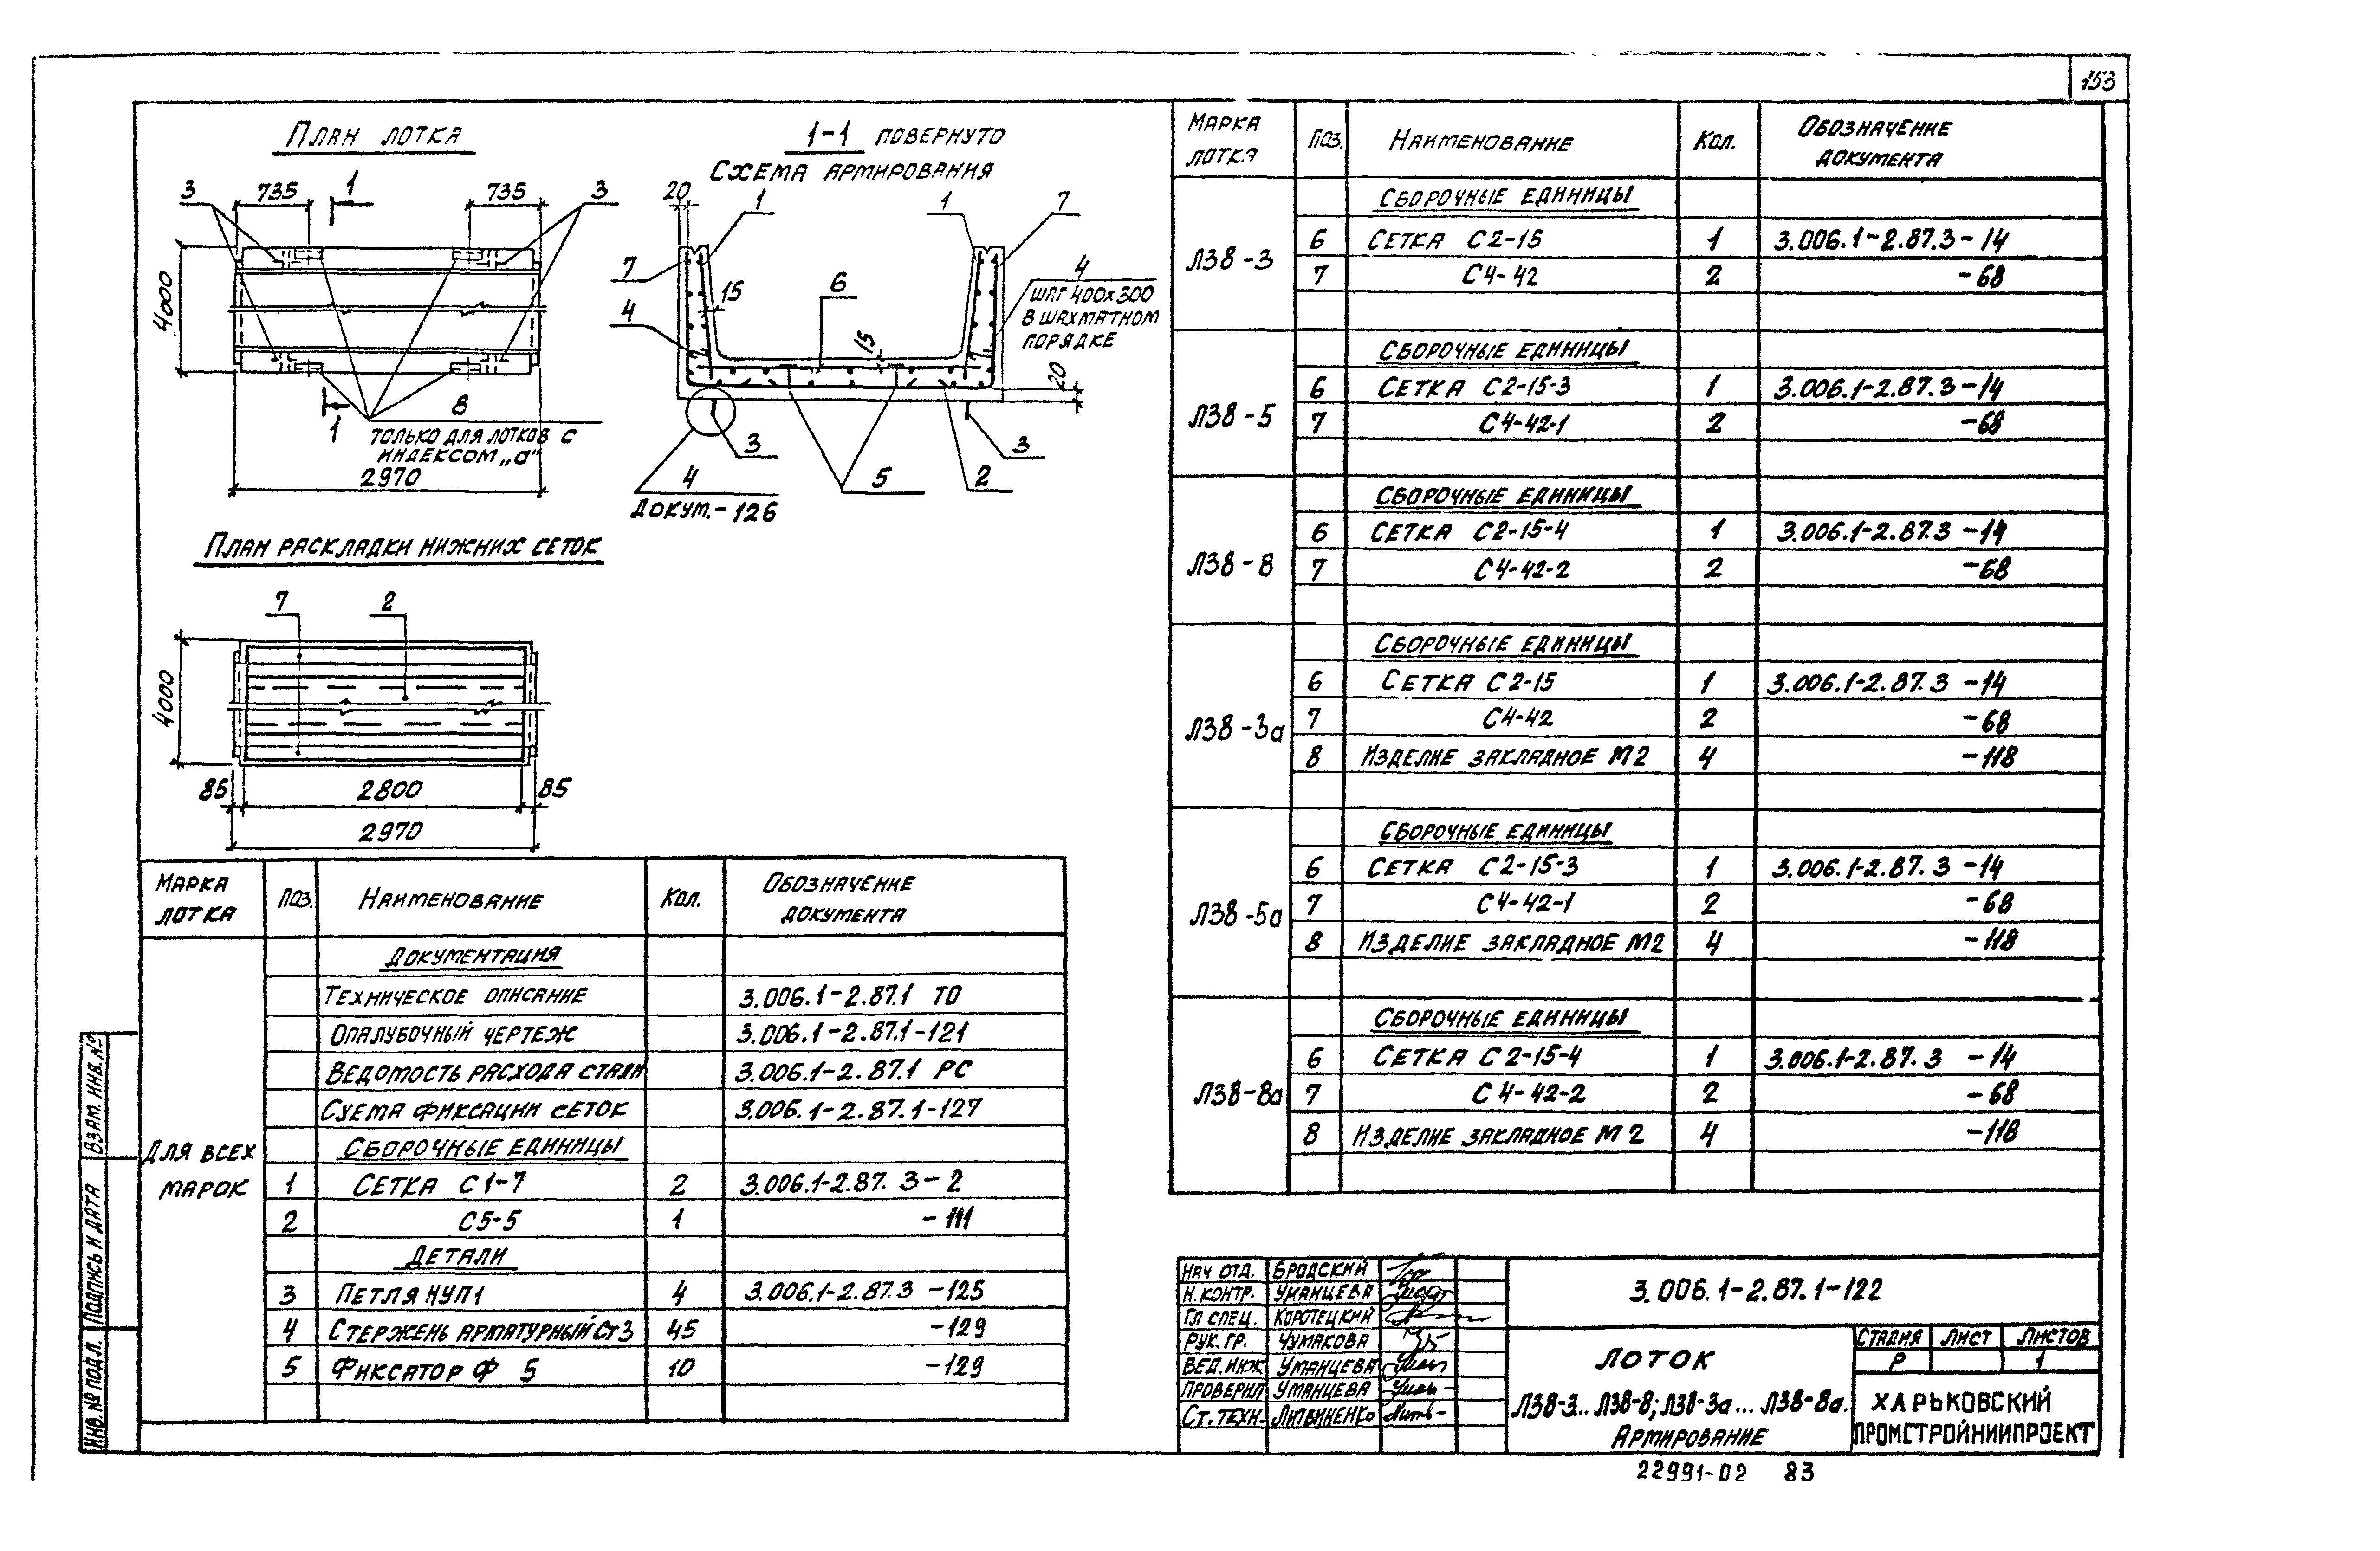 153
План лотка
3
735
1
735
3
4000
8
1
только для лотков с
индексом „а"
2970
1-1 повернуто
Схема армирования
20
1
1
7
7
15
6
4
4
шаг 400×300
в шахматном
порядке
15
20
3
3
4
Докум.-126
5
2
План раскладки нижних сеток
7
2
4000
85
2800
85
2970
Марка лотка Поз. Наименование Кол. Обозначение документа
Для всех марок
Документация
Техническое описание 3.006.1-2.87.1 ТО
Опалубочный чертеж 3.006.1-2.87.1-121
Ведомость расхода стали 3.006.1-2.87.1 РС
Схема фиксации сеток 3.006.1-2.87.1-127
Сборочные единицы
1 Сетка С1-7 2 3.006.1-2.87.3-2
2 С5-5 1 -111
Детали
3 Петля НУП1 4 3.006.1-2.87.3-125
4 Стержень арматурный Ст3 45 -129
5 Фиксатор Ф 5 10 -129
Марка лотка Поз. Наименование Кол. Обозначение документа
Л38-3
Сборочные единицы
6 Сетка С2-15 1 3.006.1-2.87.3-14
7 С4-42 2 -68
Л38-5
Сборочные единицы
6 Сетка С2-15-3 1 3.006.1-2.87.3-14
7 С4-42-1 2 -68
Л38-8
Сборочные единицы
6 Сетка С2-15-4 1 3.006.1-2.87.3-14
7 С4-42-2 2 -68
Л38-3а
Сборочные единицы
6 Сетка С2-15 1 3.006.1-2.87.3-14
7 С4-42 2 -68
8 Изделие закладное М2 4 -118
Л38-5а
Сборочные единицы
6 Сетка С2-15-3 1 3.006.1-2.87.3-14
7 С4-42-1 2 -68
8 Изделие закладное М2 4 -118
Л38-8а
Сборочные единицы
6 Сетка С2-15-4 1 3.006.1-2.87.3-14
7 С4-42-2 2 -68
8 Изделие закладное М2 4 -118
Взам. инв. №
Подпись и дата
Инв. № подл.
Нач отд. Бродский
Н.контр. Уманцева
Гл спец. Коротецкий
Рук. гр. Чумакова
Вед. инж Уманцева
Проверил Уманцева
Ст. техн. Литвиненко
3.006.1-2.87.1-122
Лоток
Л38-3... Л38-8; Л38-3а... Л38-8а.
Армирование
Стадия Лист Листов
Р 1
Харьковский
Промстройниипроект
22991-02 83